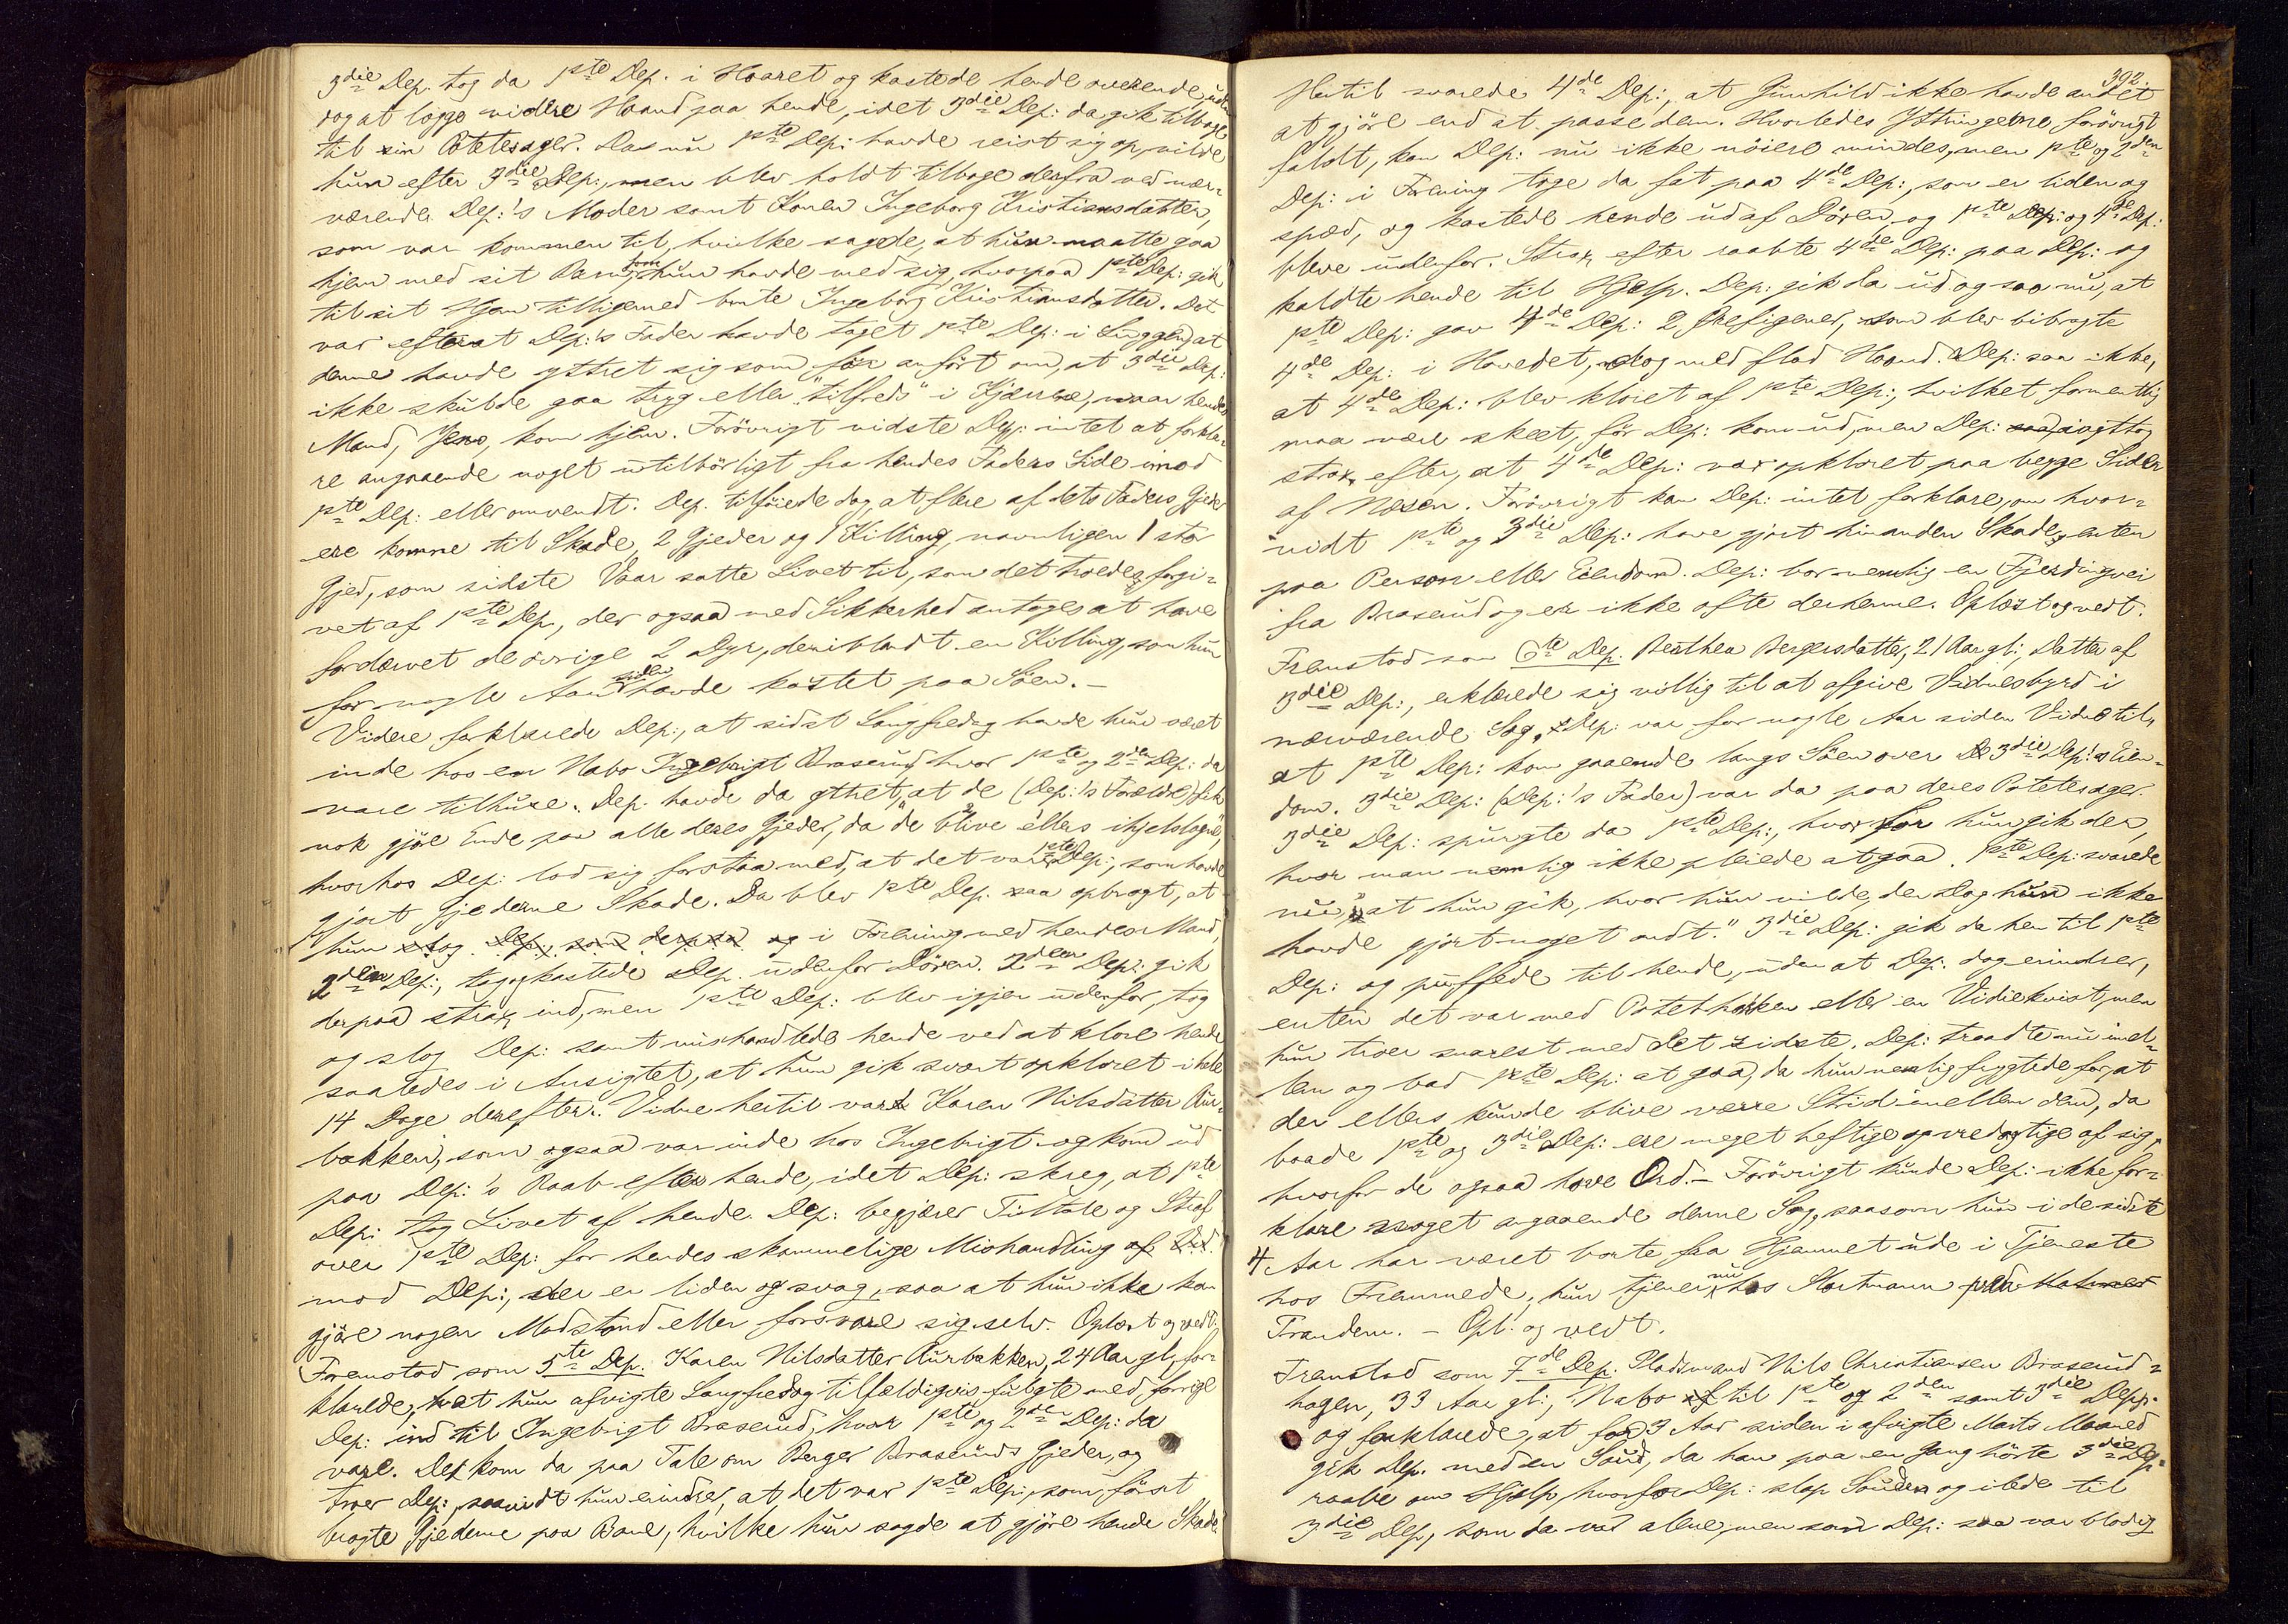 3die Dep. tog da 1ste Dep. i Haaret og kastede hende overende, uden
dog at lægge videre Haand paa hende, idet 3die Dep: da gik tilbage
til sin Potetesager. Da nu 1ste Dep: havde reist sig op, vilde
hun efter 3die Dep:, men blev holdt tilbage derfra ved nær-
værende Dep:'s Moder samt Konen Ingeborg Kristiansdatter,
som var kommen til, hvilke sagde, at hun maatte gaa
hjem med sit Barn, som hun havde med sig, hvorpaa 1ste Dep: gik
til sit Hjem tilligemed bemte Ingeborg Kristiansdatter. Det
var efterat Dep:'s Fader havde taget 1ste Dep: i Luggen, at
denne havde yttret sig som før anført om, at 3die Dep:
ikke skulde gaa tryg eller "tilfeds" i Hjørne, naar hendes
Mand, Jens, kom hjem. Forøvrigt vidste Dep: intet at forkla-
re angaaende noget utilbørligt fra hendes Faders Side imod
1ste Dep: eller omvendt. Dep. tilføiede dog, at flere af dets Faders Gjeder
ere komne til Skade, 2 Gjeder og 1 Killing, navnligen 1 stor
Gjed, som sidste Vaar satte Livet til, som det troedes, forgi-
vet af 1ste Dep., der ogsaa med Sikkerhed antoges at have
fordærvet de øvrige 2 Dyr, deriblandt en Killing, som hun
for nogle Aar siden havde kastet paa Søen.-
Videre forklarede Dep:, at sidst Langfredag havde hun været
inde hos en Nabo Ingebrigt Braserud hvor 1ste og 2den Dep: da
vare tilhuse. Dep. havde da yttret, at de (Dep:'s Forældre) fik
nok gjøre Ende paa alle deres Gjeder, da de blive ellers ihjelslagne,
hvorhos Dep: lod sig forstaa med, at det var 1ste Dep:, som havde
gjort Gjederne Skade. Da blev 1ste Dep. saa opbragt, at
hun slog Dep:, som derpaa og i Forening med hendes Mand,
2den Dep:, tog og kastede Dep. udenfor Døren. 2den Dep: gik
derpaa strax ind, men 1ste Dep: blev igjen udenfor, tog
og slog Dep: samt mishandlede hende ved at klore hende
saaledes i Ansigtet, at hun gik svært opkloret i hele
14 Dage derefter. Vidne hertil var Karen Nilsdatter Aur-
bakken, som ogsaa var inde hos Ingebrigt og kom ud
paa Dep:'s Raab efter hende, idet Dep: skreg, at 1ste
Dep: tog Livet af hende. Dep: begjærer Tiltale og Straf
over 1ste Dep: for hendes skammelige Mishandling af
mod Dep:, der er liden og svag, saa at hun ikke kan
gjøre nogen Modstand eller forsvare sig selv. Oplæst og vedt.
Fremstod som 5te Dep. Karen Nilsdatter Aurbakken, 24 Aar gl, for-
klarede, at hun afvigte Langfredag tilfældigvis fulgte med forrige
Dep: ind til Ingebrigt Braserud, hvor 1ste og 2den Dep: da
vare. Det kom da paa Tale om Berger Braseruds Gjeder, og
troer Dep:, saavidt hun erindrer, at det var 1ste Dep:, som først
bragte Gjederne paa Bane, hvilke hun sagde at gjøre hende Skade.
392.
Hertil svarede 4de Dep:, at Gunhild ikke havde andet
at gjøre end at passe dem. Hvorledes Yttringerne forøvrigt
faldt, kan Dep: nu ikke nøiere mindes, men 1ste og 2den
Dep: i Forening toge da fat paa 4de Dep:, som er liden og
spæd, og kastede hende ud af Døren, og 1ste Dep: og 4de Dep:
bleve udenfor. Strax efter raabte 4de Dep: paa Dep: og
kaldte hende til Hjelp. Dep: gik da ud og saa nu, at
1ste Dep: gav 4de Dep: 2 Ørefigener, som blev bibragte
4de Dep: i Hovedet, dog med flad Haand. Dep: saa ikke,
at 4de Dep: blev kloret af 1ste Dep:, hvilket formentlig
maa være skeet, før Dep: kom ud, men Dep: saa iagttog
strax efter, at 4de Dep: var opkloret paa begge Sider
af Næsen. Forøvrigt kan Dep: intet forklare, om hvor-
vidt 1ste og 3die Dep: have gjort hinanden Skade, enten
paa Person eller Eiendom. Dep: bor nemlig en Fjerdingvei
fra Braserud og er ikke ofte derhenne. Oplæst og vedt.
Fremstod som 6te Dep. Berthea Bergersdatter, 21 Aar gl:, Datter af
3die Dep:, erklærede sig villig til at afgive Vidnesbyrd i
nærværende Sag. Dep: var for nogle Aar siden Vidne til,
at 1ste Dep: kom gaaende langs Søen over 3die Dep:'s Eien-
dom. 3die Dep: (Dep:'s Fader) var da paa deres Potetesager.
3die Dep: spurgte da 1ste Dep:, hvorfor hun gik der,
hvor man nemlig ikke pleiede at gaa. 1ste Dep: svarede
nu, "at hun gik, hvor hun vilde, der slog hun ikke
havde gjort noget ondt." 3die Dep: gik da hen til 1ste
Dep: og puffede til hende, uden at Dep. dog erindrer,
enten det var med Potethakken eller en Vidiekvist, men
hun troer snarest med det sidste. Dep: traadte nu imel-
len og bad 1ste Dep: at gaa, da hun nemlig frygtede for, at
der ellers kunde blive værre Strid imellem dem, da
baade 1ste og 3die Dep: ere meget heftige opvredagtige af sig,
hvorfor de ogsaa have Ord.- Forøvrigt kunde Dep: ikke for-
klare noget angaaende denne Sag, saasom hun i de sidste
4 Aar har været borte fra Hjemmet ude i Tjeneste
hos Fremmede; hun tjener nu hos Hartmann paa
Trandem. - Opl: og vedt.
Fremstod som 7de Dep. Pladsmand Nils Christiansen Braserud-
hagen, 33 Aar gl:, Nabo af til 1ste og 2den samt 3die Depp.
og forklarede, at for 3 Aar siden i afvigte Marts Maaned
gik Dep. med en Saud, da han paa en Gang hørte 3die Dep.
raabe om Hjelp, hvorfor Dep: slap Sauden og ilede til
3die Dep, som da var alene, men som Dep: saa var blodig